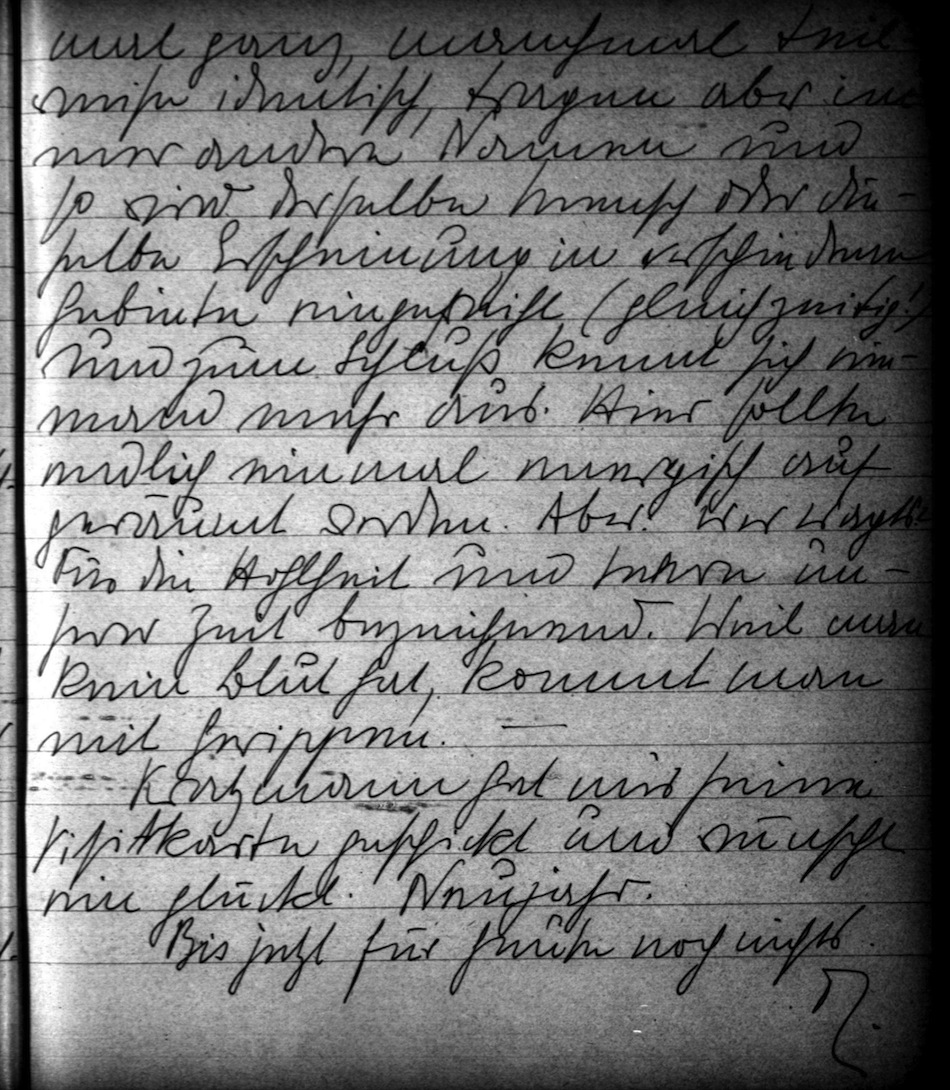 mal ganz, manchmal teil-
weise identisch, tragen aber im-
mer andern Namen und
so wird derselbe Mensch oder die-
selbe Erscheinung in verschiedenen
Gebieten eingereiht (gleichzeitig!)
und zum Schluß kennt sich nie-
mand mehr aus. Hier sollte
endlich einmal energisch auf
geräumt werden. Aber: wer wagts?
Für die Hohlheit und Leere un-
serer Zeit bezeichnend. Weil man
kein Blut hat, kommt man
mit Gerippen. —
Kratzmann hat mir seine
Visitkarte geschickt und wünscht
ein glückl. Neujahr.
Bis jetzt für heute noch nichts.